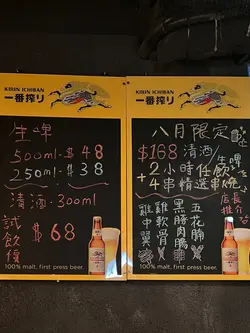 KIRIN ICHIBAN
一番搾り
生啤
500ml-$48
250ml-$38
清酒-300ml
試飲價
$68
100% malt, first press beer.
KIRIN ICHIBAN
一番搾り
八月限定
$168清酒/生啤
+2小時任飲
+4串精選串燒
店長推介
五花腩
黑豚肉腸
雞軟骨
雞中翼
100% malt, first press beer.